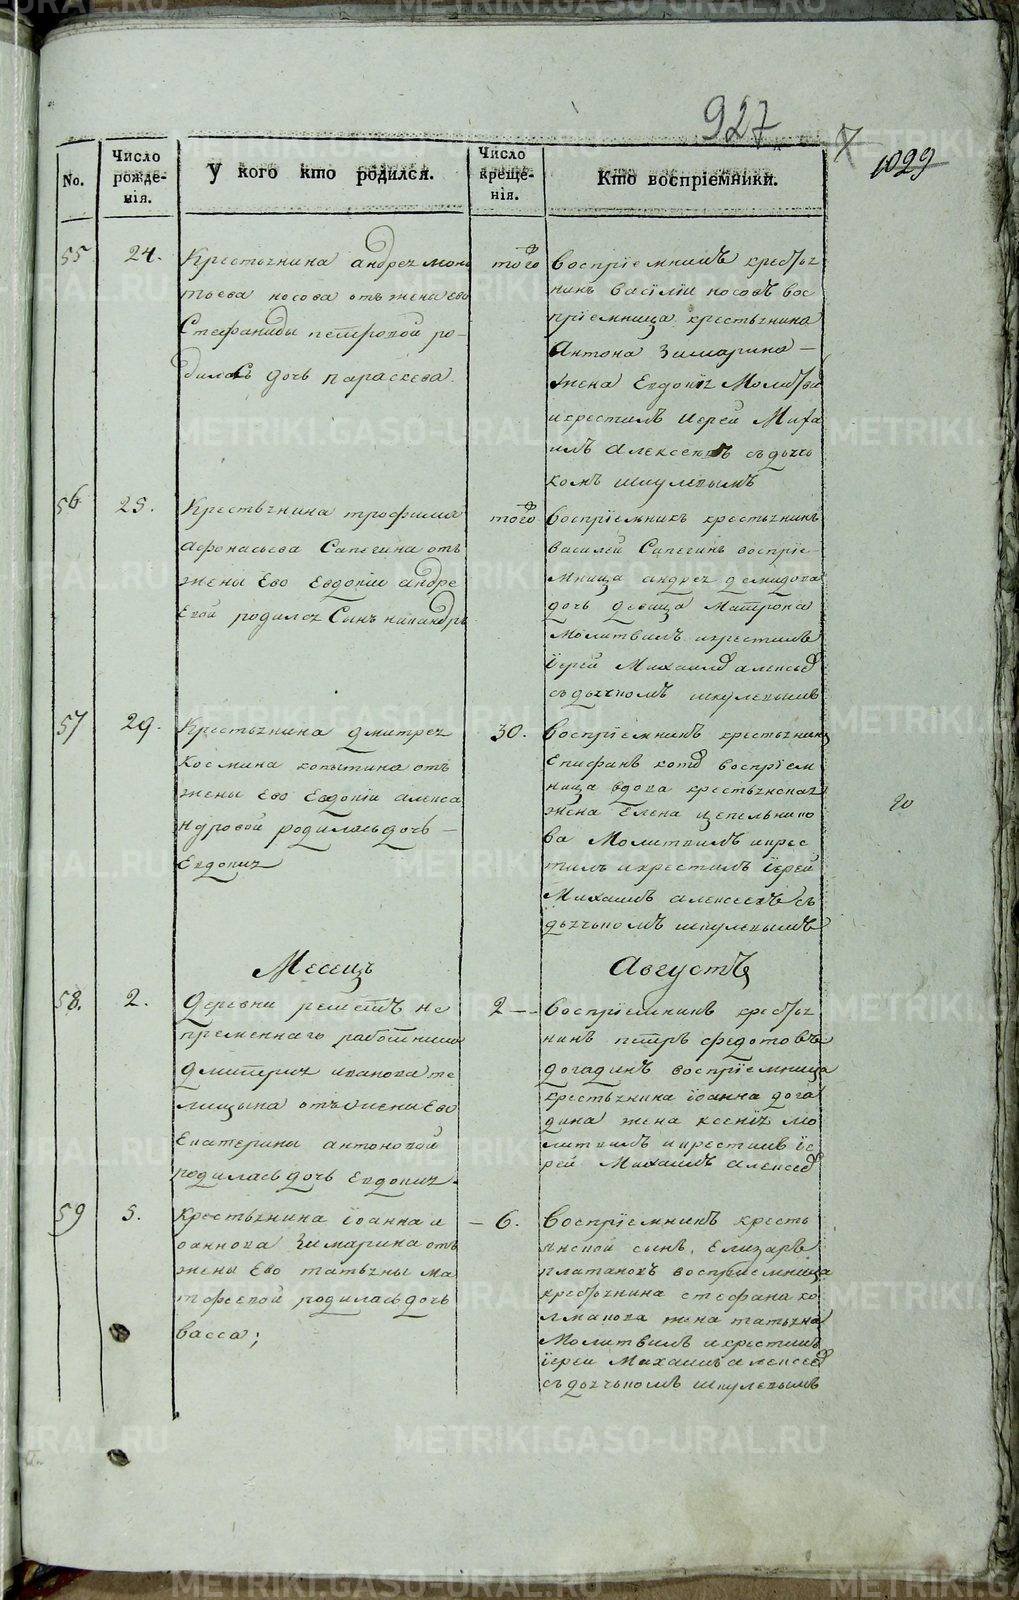 927
1099
No.
Число рожденія.
У кого кто родился.
Число крещенія.
Кто воспріемники.
55
24.
Крестьянина андрея
тьева носова отъ жены ево
Стефаниды петровой ро-
дилась дочь параскева.
того
воспріемникъ кресть
нинъ василіи носовъ вос
пріемница крестьянина
Антона Зимарина -
жена Евдокія Молитвил
и крестилъ иерей Миха
илъ алексеевъ съ дьячь
комъ шкулевымъ
56
25.
Крестьянина трофима
афонасьева Сапегина отъ
жены Ево Евдокіи андре
Евой родился Сынъ никандръ
того
воспріемникъ крестьянинъ
василей Сапегинъ воспріе-
мница андрея демидова
дочь девица Матрона
молитвилъ икрестилъ
іерей Михаилъ алексеев
съ дьячкомъ шкулевымъ
57
29.
Крестьянина дмитрея
Космина копытина отъ
жены Ево Евдокіи алекса
ндровой родилась дочь -
Евдокия
30.
воспріемникъ крестьянинъ
Епифанъ котов воспріем
ница вдова крестьянская
жена Елена щепельнико
ва Молитвилъ икрес
тилъ икрестилъ іерей
Михаилъ алексеевъ съ
дьячькомъ шкулевымъ
Месецъ
Августъ
58.
2.
Деревни решетъ не
пременнаго работника
дмитрия иванова те
лицына отъ жены Ево
Екатерины антоновой
родилась дочь Евдокия.
2 -
воспріемникъ кресть
нинъ петръ федотовъ
догадинъ воспріемница
крестьянина іоанна дога
дина жена ксенія мо
литвилъ икрестилъ іе
рей Михаилъ алексеев
59
5.
Крестьянина іоанна и
оаннова Зимарина отъ
жены Ево татьяны ма
тфеевой родилась дочь
васса;
- 6.
воспріемникъ кресть
янской сынъ Елизаръ
платановъ воспріемница
крестьянина стефана ко
лмакова жена татьяна
молитвилъ икрестилъ
іереи Михаилъ алексеев
съ дьячькомъ шкулевымъ
METRIKI.GASO-URAL.RU